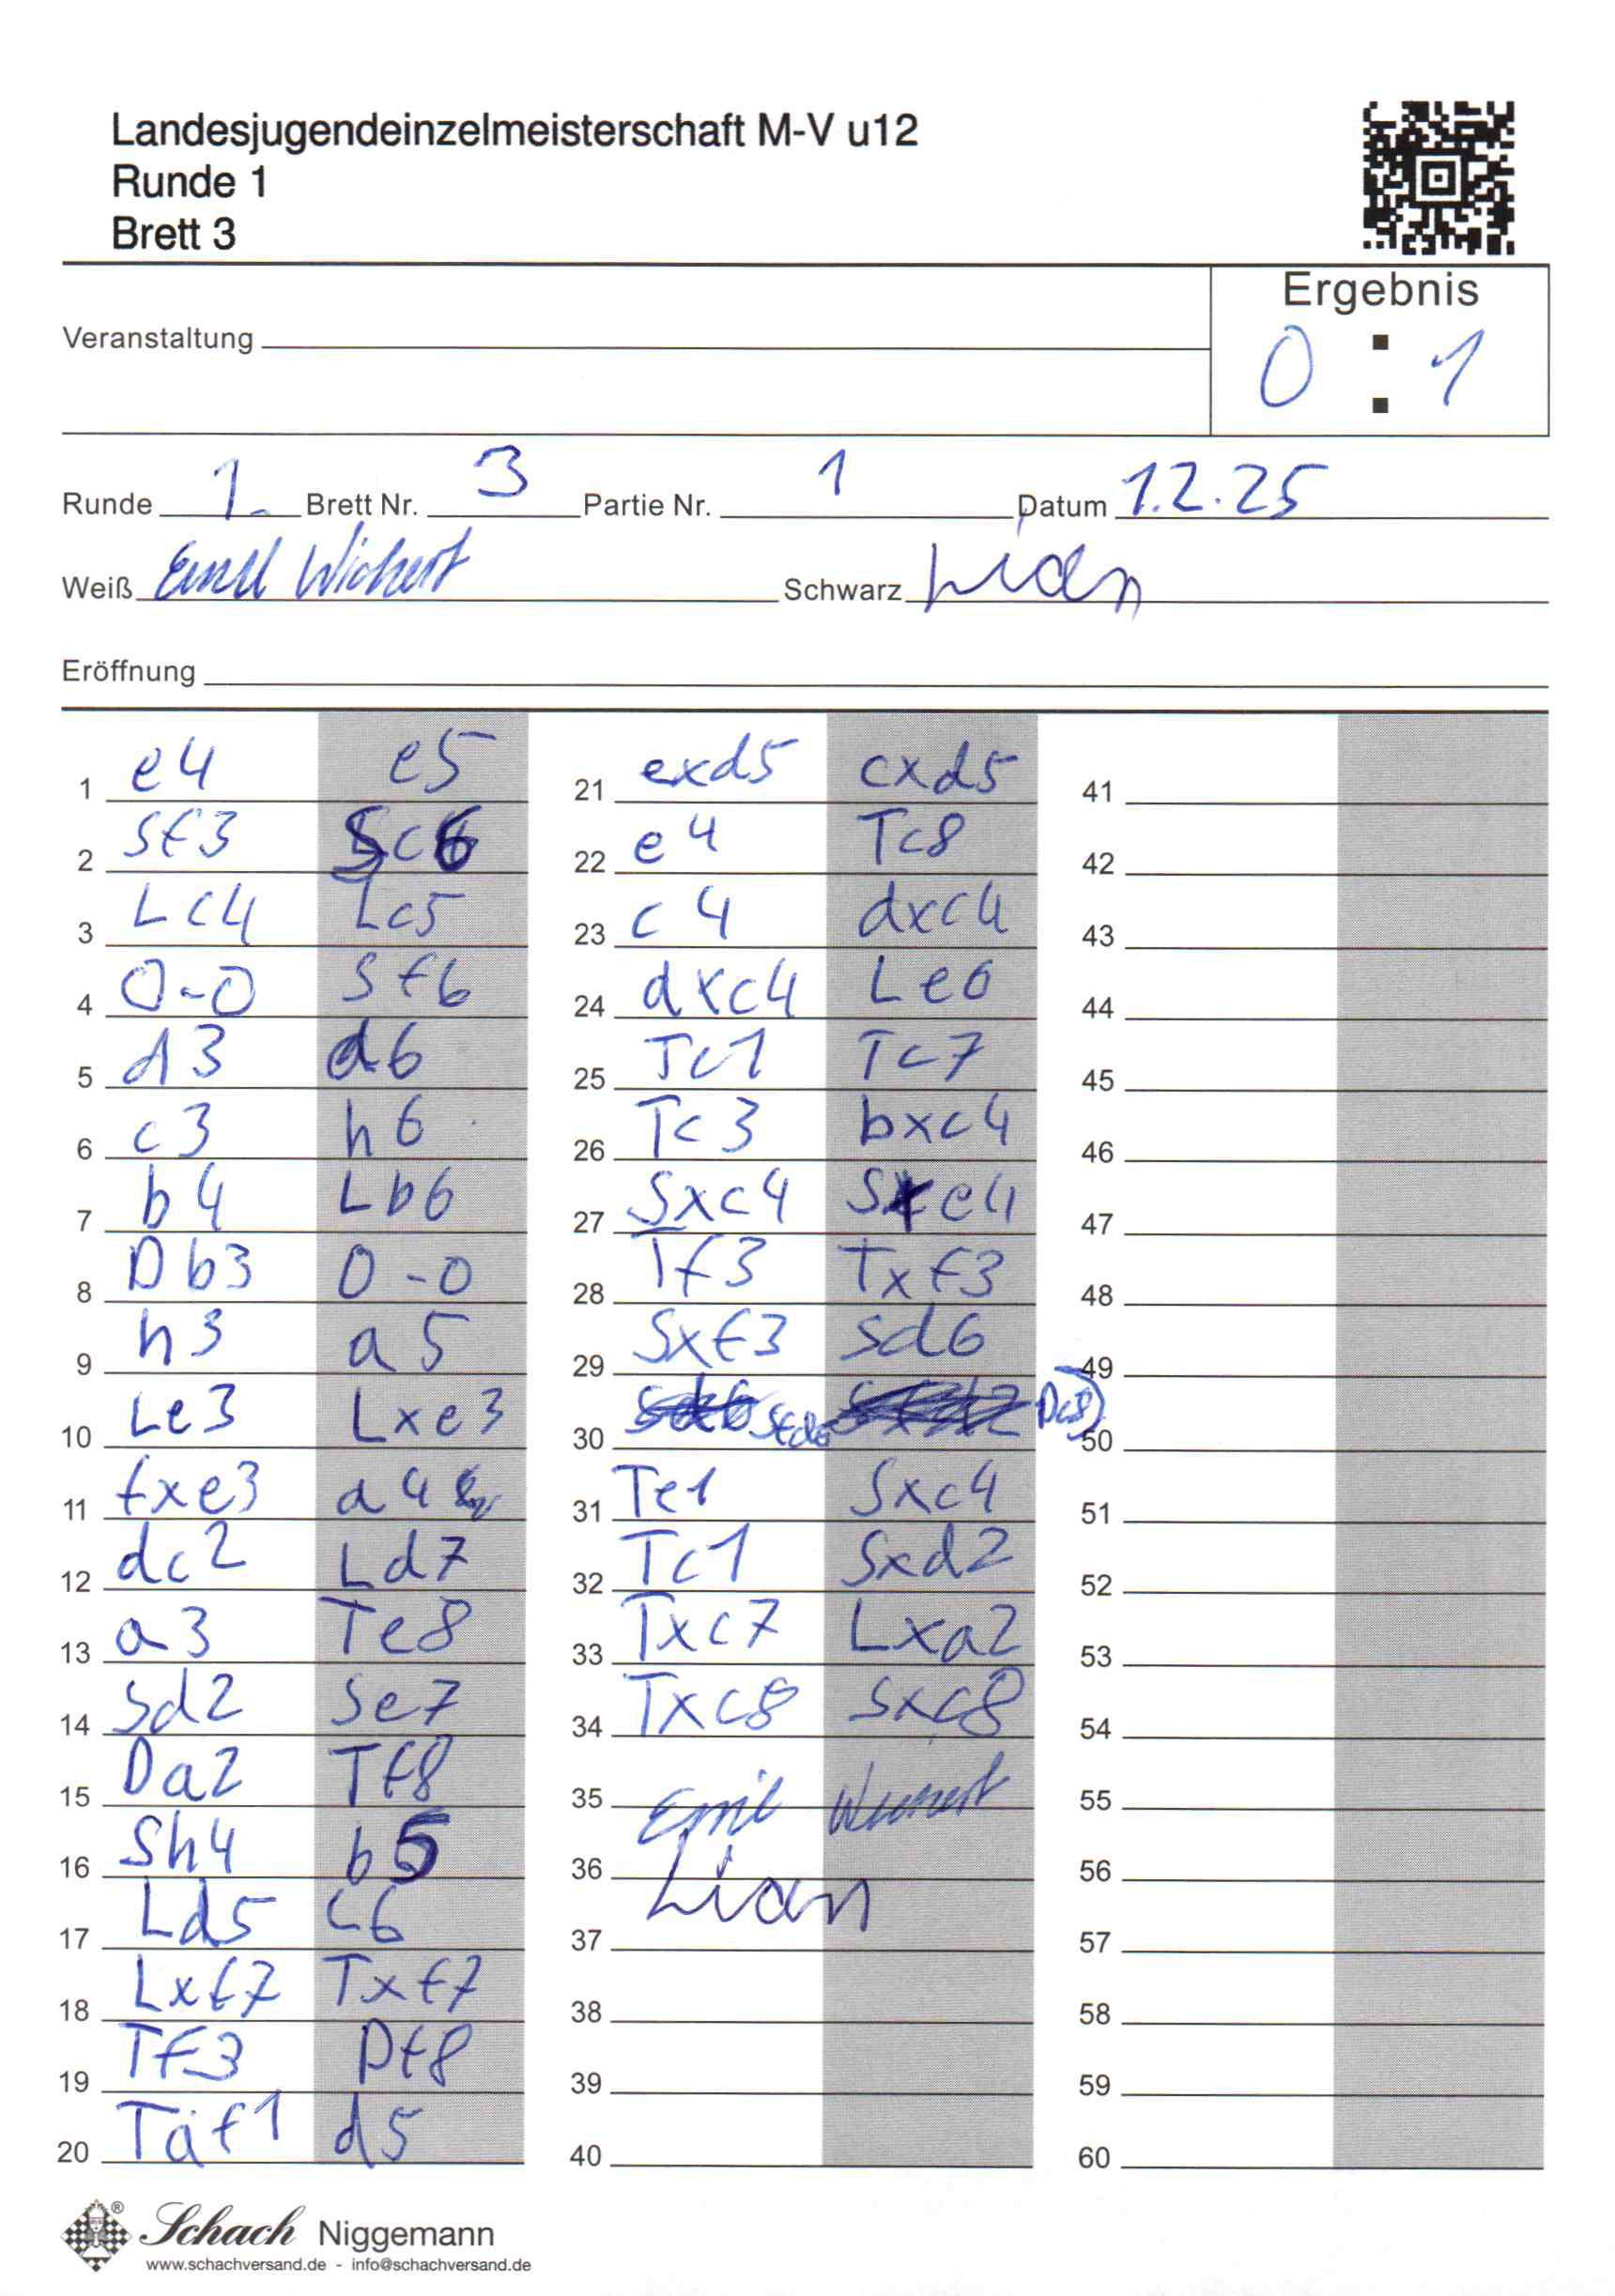 Landesjugendeinzelmeisterschaft M-V u12
Runde 1
Brett 3
Ergebnis
0 : 1
Veranstaltung
Runde 1. Brett Nr. 3 Partie Nr. 1 Datum 1.2.25
Weiß Emil Wichert Schwarz Lian
Eröffnung
1 e4 e5
2 Sf3 Sc6
3 Lc4 Lc5
4 0-0 Sf6
5 d3 d6
6 c3 h6
7 b4 Lb6
8 Db3 0-0
9 h3 a5
10 Le3 Lxe3
11 fxe3 a4
12 dc2 Ld7
13 a3 Te8
14 Sd2 Se7
15 Da2 Tf8
16 Sh4 b5
17 Ld5 c6
18 Lxf7 Txf7
19 Tf3 Df8
20 Taf1 d5
21 exd5 cxd5
22 e4 Tc8
23 c4 dxc4
24 dxc4 Le6
25 Tc1 Tc7
26 Tc3 bxc4
27 Sxc4 Sxe4
28 Tf3 Txf3
29 Sxf3 Sd6
30 Sfd2 Dc8
31 Te1 Sxc4
32 Tc1 Sxd2
33 Txc7 Lxa2
34 Txc8 Sxc8
35 Emil Wichert
36 Lian
37
38
39
40
41
42
43
44
45
46
47
48
49
50
51
52
53
54
55
56
57
58
59
60
Schach Niggemann
www.schachversand.de - info@schachversand.de